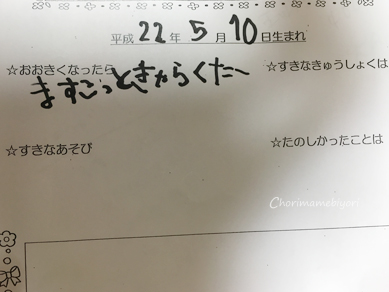 平成22年5月10日生まれ
☆おおきくなったら
ますこっときゃらくたー
☆すきなきゅうしょくは
☆すきなあそび
☆たのしかったことは
Chorimamebiyori